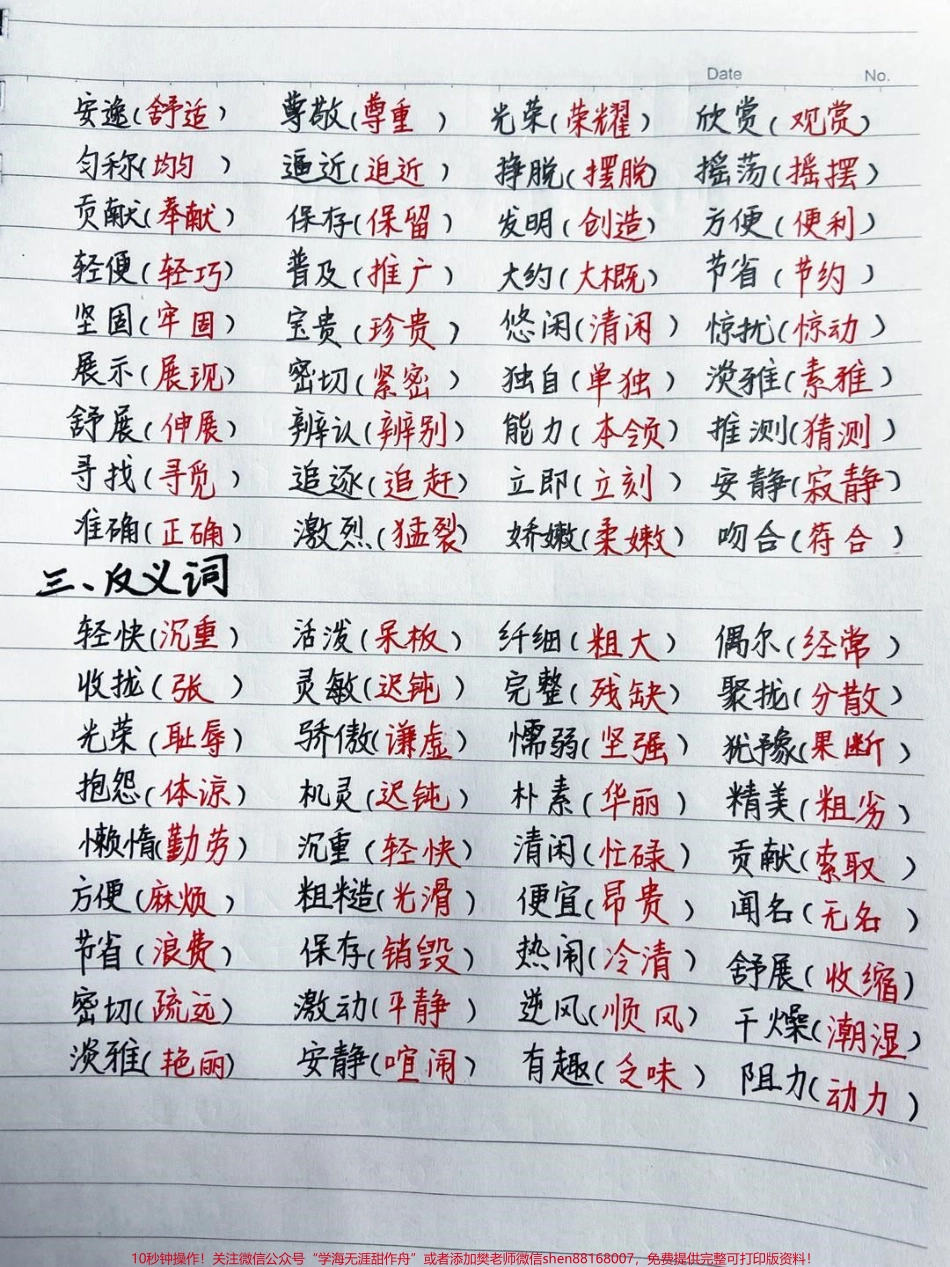 Date No.
安逸(舒适) 尊敬(尊重) 光荣(荣耀) 欣赏(观赏)
匀称(均匀) 逼近(迫近) 挣脱(摆脱) 摇荡(摇摆)
贡献(奉献) 保存(保留) 发明(创造) 方便(便利)
轻便(轻巧) 普及(推广) 大约(大概) 节省(节约)
坚固(牢固) 宝贵(珍贵) 悠闲(清闲) 惊扰(惊动)
展示(展现) 密切(紧密) 独自(单独) 淡雅(素雅)
舒展(伸展) 辨认(辨别) 能力(本领) 推测(猜测)
寻找(寻觅) 追逐(追赶) 立即(立刻) 安静(寂静)
准确(正确) 激烈(猛裂) 娇嫩(柔嫩) 吻合(符合)
三、反义词
轻快(沉重) 活泼(呆板) 纤细(粗大) 偶尔(经常)
收拢(张) 灵敏(迟钝) 完整(残缺) 聚拢(分散)
光荣(耻辱) 骄傲(谦虚) 懦弱(坚强) 犹豫(果断)
抱怨(体谅) 机灵(迟钝) 朴素(华丽) 精美(粗劣)
懒惰(勤劳) 沉重(轻快) 清闲(忙碌) 贡献(索取)
方便(麻烦) 粗糙(光滑) 便宜(昂贵) 闻名(无名)
节省(浪费) 保存(销毁) 热闹(冷清) 舒展(收缩)
密切(疏远) 激动(平静) 逆风(顺风) 干燥(潮湿)
淡雅(艳丽) 安静(喧闹) 有趣(乏味) 阻力(动力)
10秒钟操作！关注微信公众号“学海无涯甜作舟”或者添加樊老师微信shen88168007，免费提供完整可打印版资料！